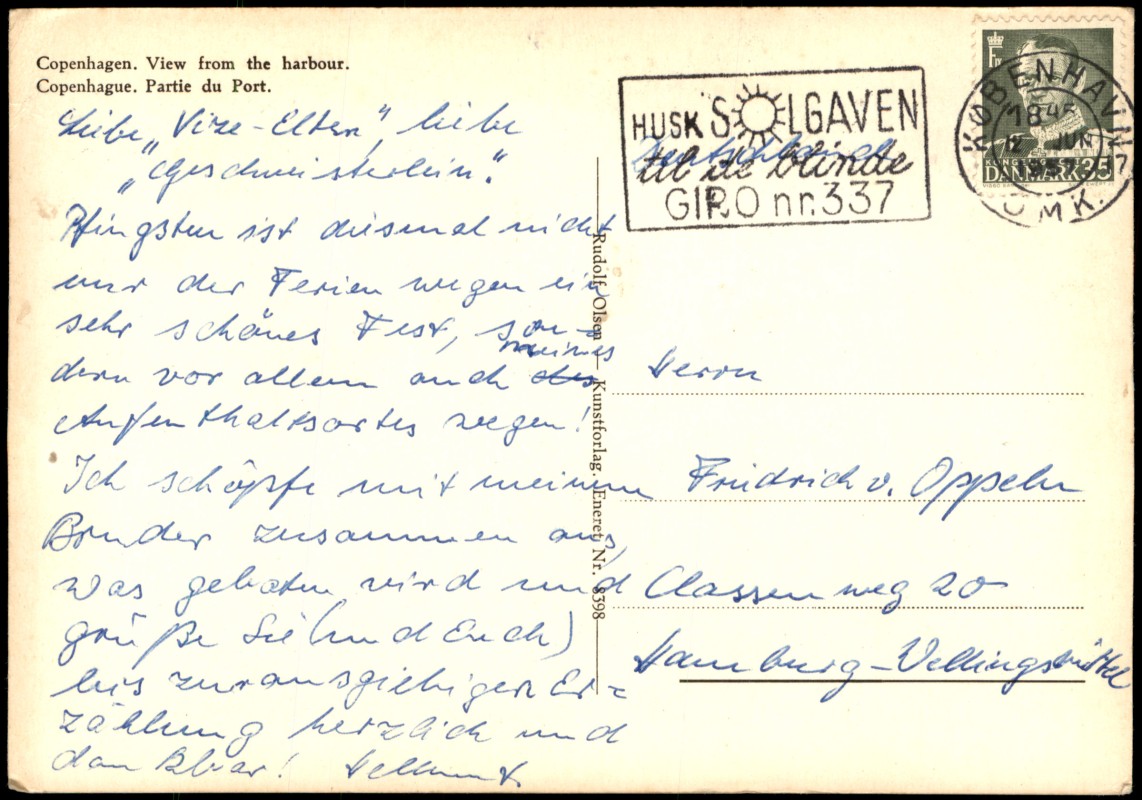 Copenhagen. View from the harbour.
Copenhague. Partie du Port.
Liebe „Vize-Eltern", liebe
„Geschwisterlein".
Pfingsten ist diesmal nicht
nur der Ferien wegen ein
sehr schönes Fest, son-
dern vor allem auch des meines
Aufenthaltsortes wegen!
Ich schöpfe mit meinem
Bruder zusammen aus,
was geboten wird und
grüße Sie (und Euch)
bis zur ausgiebigen Er-
zählung herzlich und
dankbar! Hellmut.
Rudolf Olsen — Kunstforlag. Eneret Nr. 8398
HUSK SOLGAVEN
til de blinde
GIRO nr. 337
Deutschland
KØBENHAVN
1845
12 JUN
OMK.
17
DANMARK 35
Herrn
Friedrich v. Oppeln
Classenweg 20
Hamburg-Wellingsbüttel